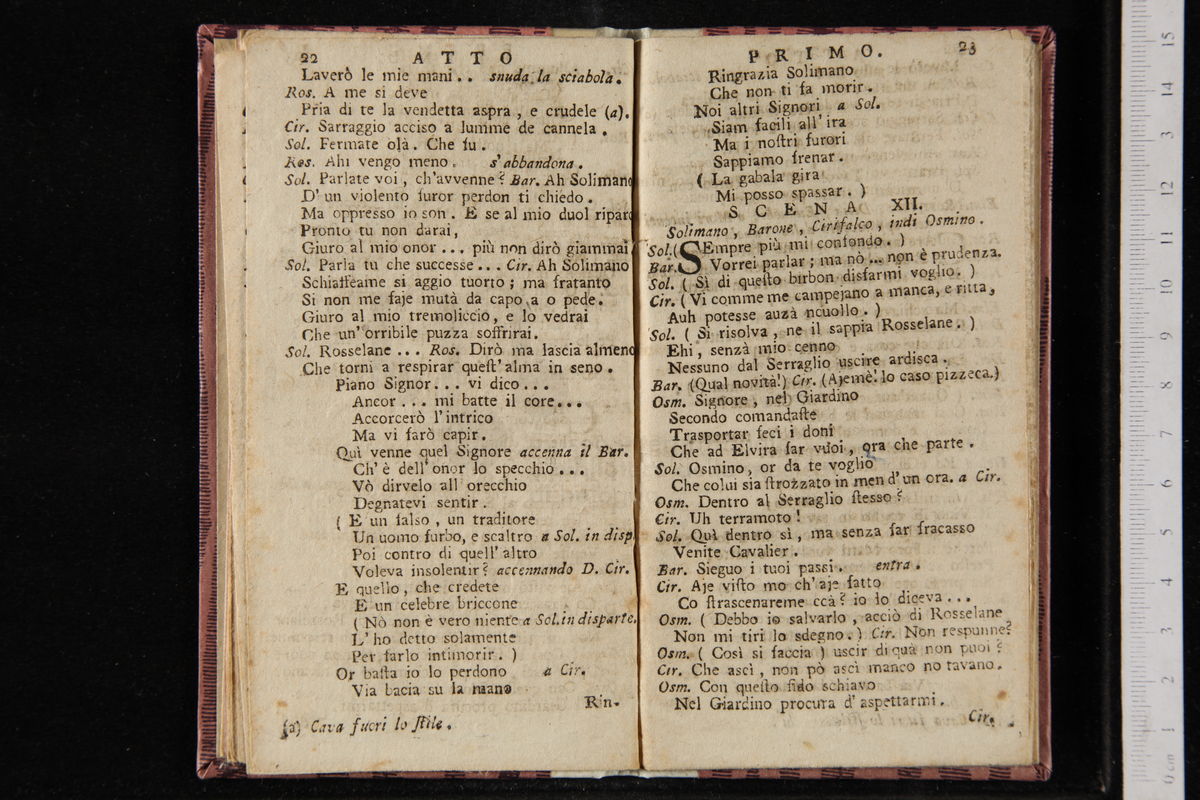 22 ATTO
Laverò le mie mani.. snuda la sciabola.
Ros. A me si deve
Pria di te la vendetta aspra, e crudele (a).
Cir. Sarraggio acciso a lumme de cannela.
Sol. Fermate olà. Che fu.
Ros. Ahi vengo meno. s'abbandona.
Sol. Parlate voi, ch'avvenne? Bar. Ah Solimano
D'un violento furor perdon ti chiedo.
Ma oppresso io son. E se al mio duol riparo
Pronto tu non darai,
Giuro al mio onor... più non dirò giammai
Sol. Parla tu che successe... Cir. Ah Solimano
Schiaffeame si aggio tuorto; ma fratanto
Si non me faje mutà da capo a o pede.
Giuro al mio tremoliccio, e lo vedrai
Che un'orribile puzza soffrirai.
Sol. Rosselane... Ros. Dirò ma lascia almeno
Che torni a respirar quest'alma in seno.
Piano Signor... vi dico...
Ancor... mi batte il core...
Accorcerò l'intrico
Ma vi farò capir.
Quì venne quel Signore accenna il Bar.
Ch'è dell'onor lo specchio...
Vò dirvelo all orecchio
Degnatevi sentir.
( E un falso, un traditore
Un uomo furbo, e scaltro a Sol. in disp.
Poi contro di quell'altro
Voleva insolentir? accennando D. Cir.
E quello, che credete
E un celebre briccone
( Nò non è vero niente a Sol. in disparte.
L'ho detto solamente
Per farlo intimorir. )
Or basta io lo perdono a Cir.
Via bacia su la mano
Rin-
(a) Cava fuori lo stile.
PRIMO. 23
Ringrazia Solimano
Che non ti fa morir.
Noi altri Signori a Sol.
Siam facili all'ira
Ma i nostri furori
Sappiamo frenar.
( La gabala gira
Mi posso spassar. )
SCENA XII.
Solimano, Barone, Cirifalco, indi Osmino.
Sol. (SEmpre più mi confondo. )
Bar. Vorrei parlar; ma nò... non è prudenza.
Sol. ( Sì di questo birbon disfarmi voglio. )
Cir. ( Vi comme me campejano a manca, e ritta,
Auh potesse auzà ncuollo. )
Sol. ( Si risolva, ne il sappia Rosselane. )
Ehi, senzà mio cenno
Nessuno dal Serraglio uscire ardisca.
Bar. (Qual novità!) Cir. (Ajemè! lo caso pizzeca.)
Osm. Signore, nel Giardino
Secondo comandaste
Trasportar feci i doni
Che ad Elvira far vuoi, ora che parte.
Sol. Osmino, or da te voglio
Che colui sia strozzato in men d'un ora. a Cir.
Osm. Dentro al Serraglio stesso?
Cir. Uh terramoto!
Sol. Quì dentro sì, ma senza far fracasso
Venite Cavalier.
Bar. Sieguo i tuoi passi. entra.
Cir. Aje visto mo ch'aje fatto
Co strascenareme ccà? io lo diceva...
Osm. ( Debbo io salvarlo, acciò di Rosselane
Non mi tiri lo sdegno. ) Cir. Non respunne?
Osm. ( Così si faccia ) uscir di quà non puoi?
Cir. Che ascì, non pò ascì manco no tavano.
Osm. Con questo fido schiavo
Nel Giardino procura d'aspettarmi.
Cir.